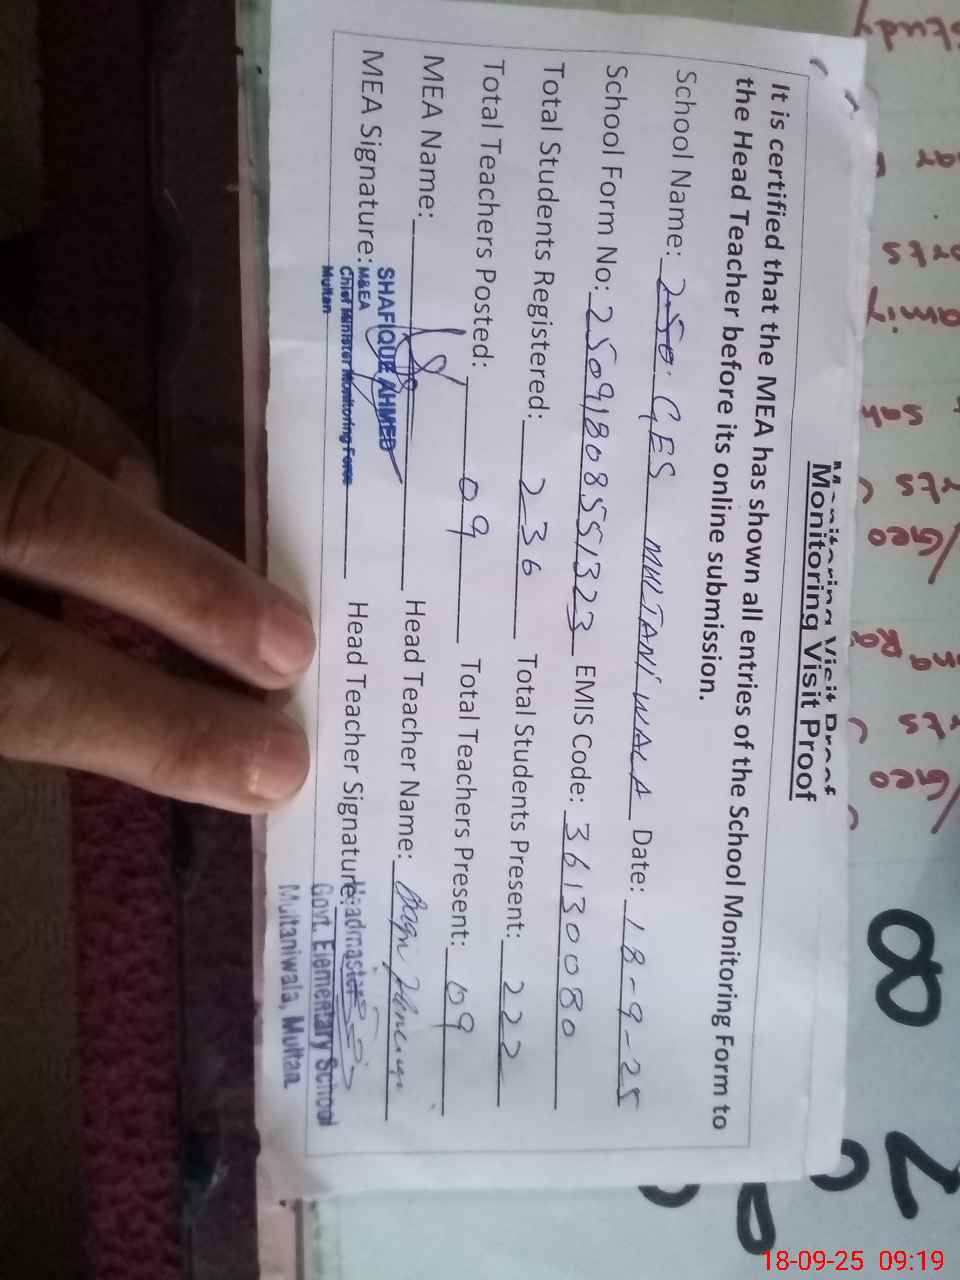 Monitoring Visit Proof
Monitoring Visit Proof
It is certified that the MEA has shown all entries of the School Monitoring Form to
the Head Teacher before its online submission.
School Name: 250 GES MULTANI WALA Date: 18-9-25
School Form No: 25091808551323 EMIS Code: 36130080
Total Students Registered: 236 Total Students Present: 222
Total Teachers Posted: 09 Total Teachers Present: 09
MEA Name: Head Teacher Name:
MEA Signature: Head Teacher Signature:
SHAFIQUE AHMED
M&EA
Chief Minister Monitoring Force
Multan
Headmaster
Govt. Elementary School
Multaniwala, Multan
study
Geo
Geo
8
18-09-25 09:19